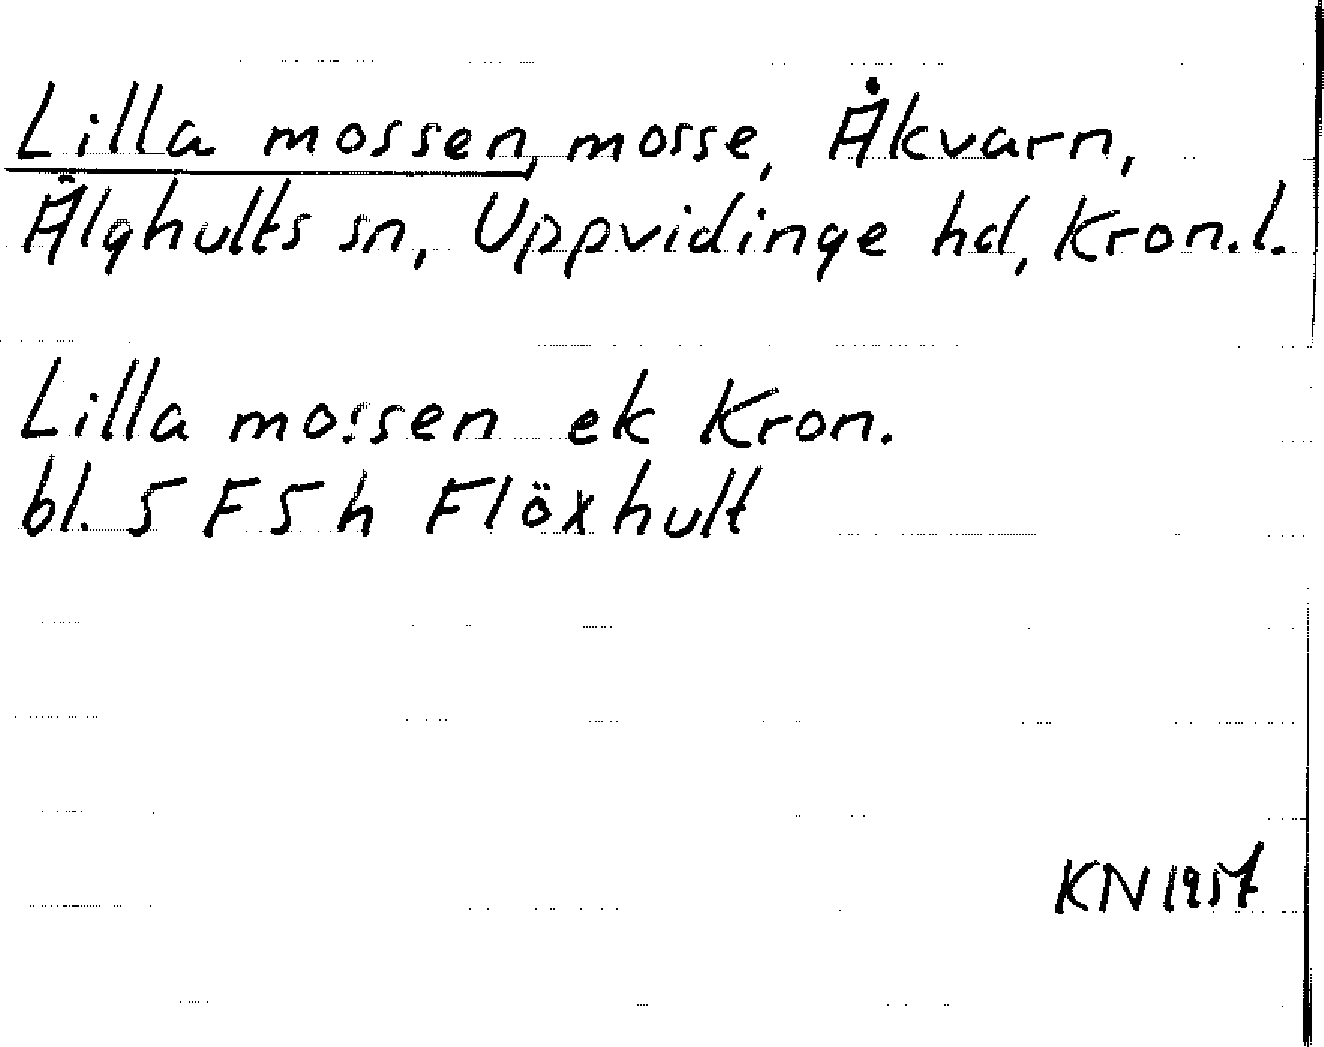 Lilla mossen, mosse, Åkvarn,
Älghults sn, Uppvidinge hd, Kron.l.
Lilla mossen ek Kron.
bl. 5 F 5 h Flöxhult
KN 1957